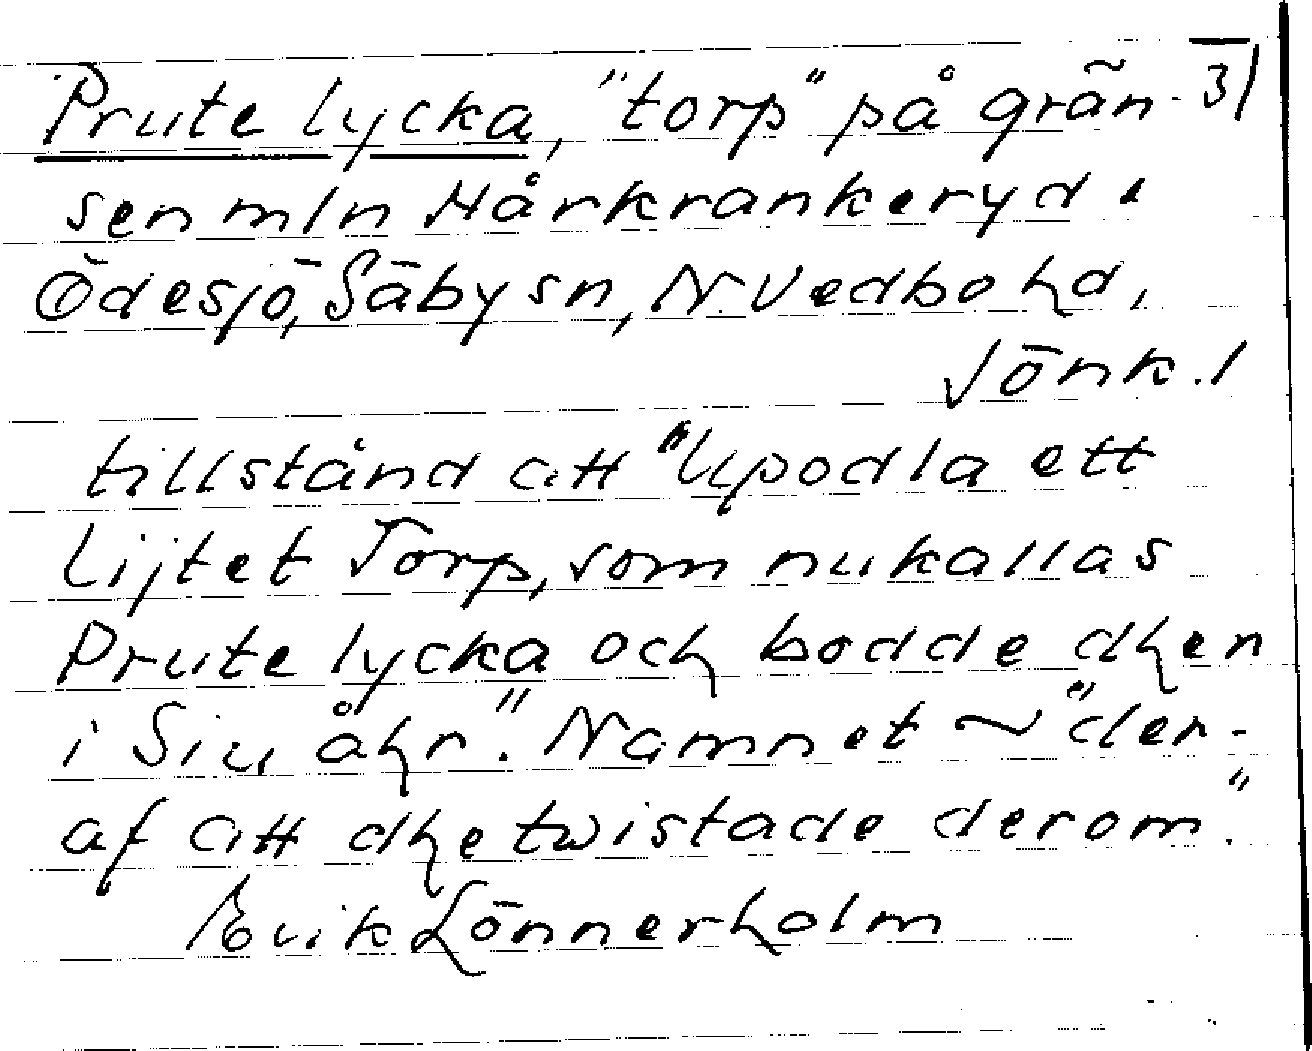 Prute lycka, "torp" på grän- 3)
sen mln Hårkrankeryd &
Ödesjö, Säby sn, N. Vedbo hd,
Jönk. l
tillstånd att "Upodla ett
Lijtet Torp, som nu kallas
Prute lycka och bodde dhen
i Siu åhr." Namnet ~ "der-
af att dhe twistade derom."
Erik Lönnerholm